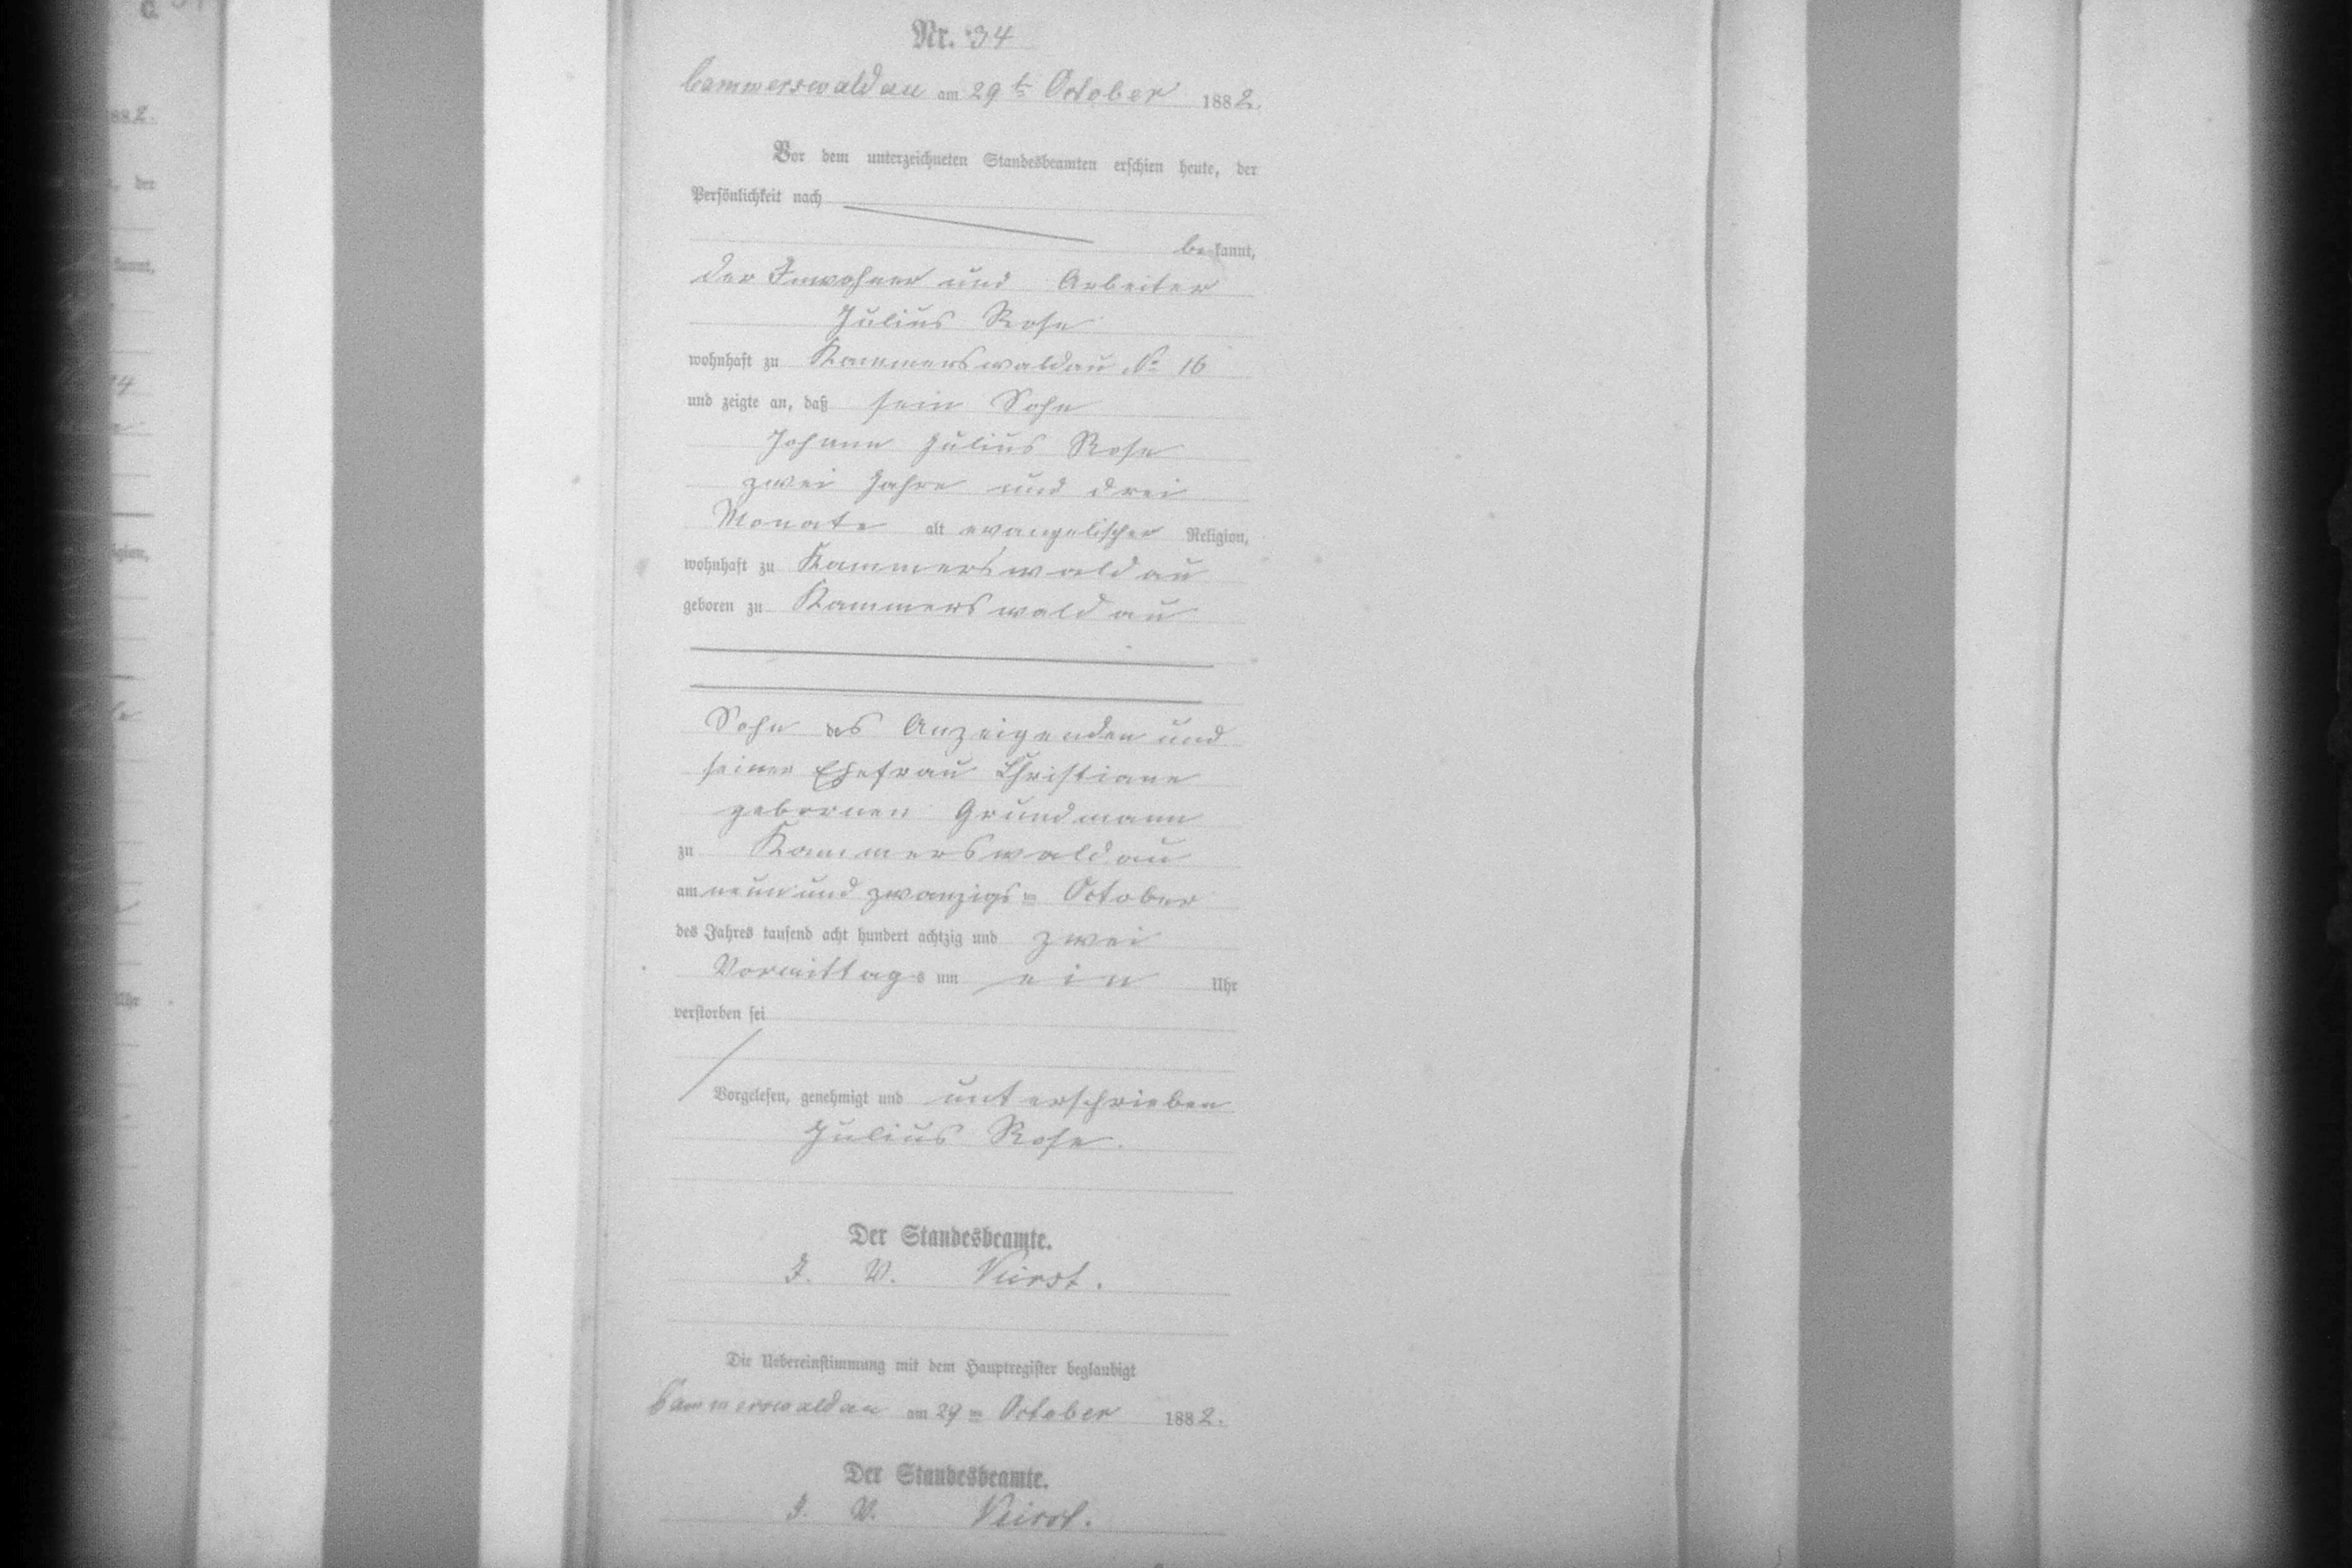 Nr. 34
Cammerswaldau am 29 ts October 1882.
Vor dem unterzeichneten Standesbeamten erschien heute, der
Persönlichkeit nach
bekannt,
der Inwohner und Arbeiter
Julius Rose
wohnhaft zu Kammerswaldau No 16
und zeigte an, daß sein Sohn
Johann Julius Rose
zwei Jahre und drei
Monate alt evangelischer Religion,
wohnhaft zu Kammerswaldau
geboren zu Kammerswaldau
Sohn des Anzeigenden und
seiner Ehefrau Christiane
gebornen Grundmann
zu Kammerswaldau
am neun und zwanzigsten October
des Jahres tausend acht hundert achtzig und zwei
Vormittags um ein Uhr
verstorben sei
Vorgelesen, genehmigt und unterschrieben
Julius Rose.
Der Standesbeamte.
I. V.
Die Uebereinstimmung mit dem Hauptregister beglaubigt
Cammerswaldau am 29 ten October 1882.
Der Standesbeamte.
I. V.